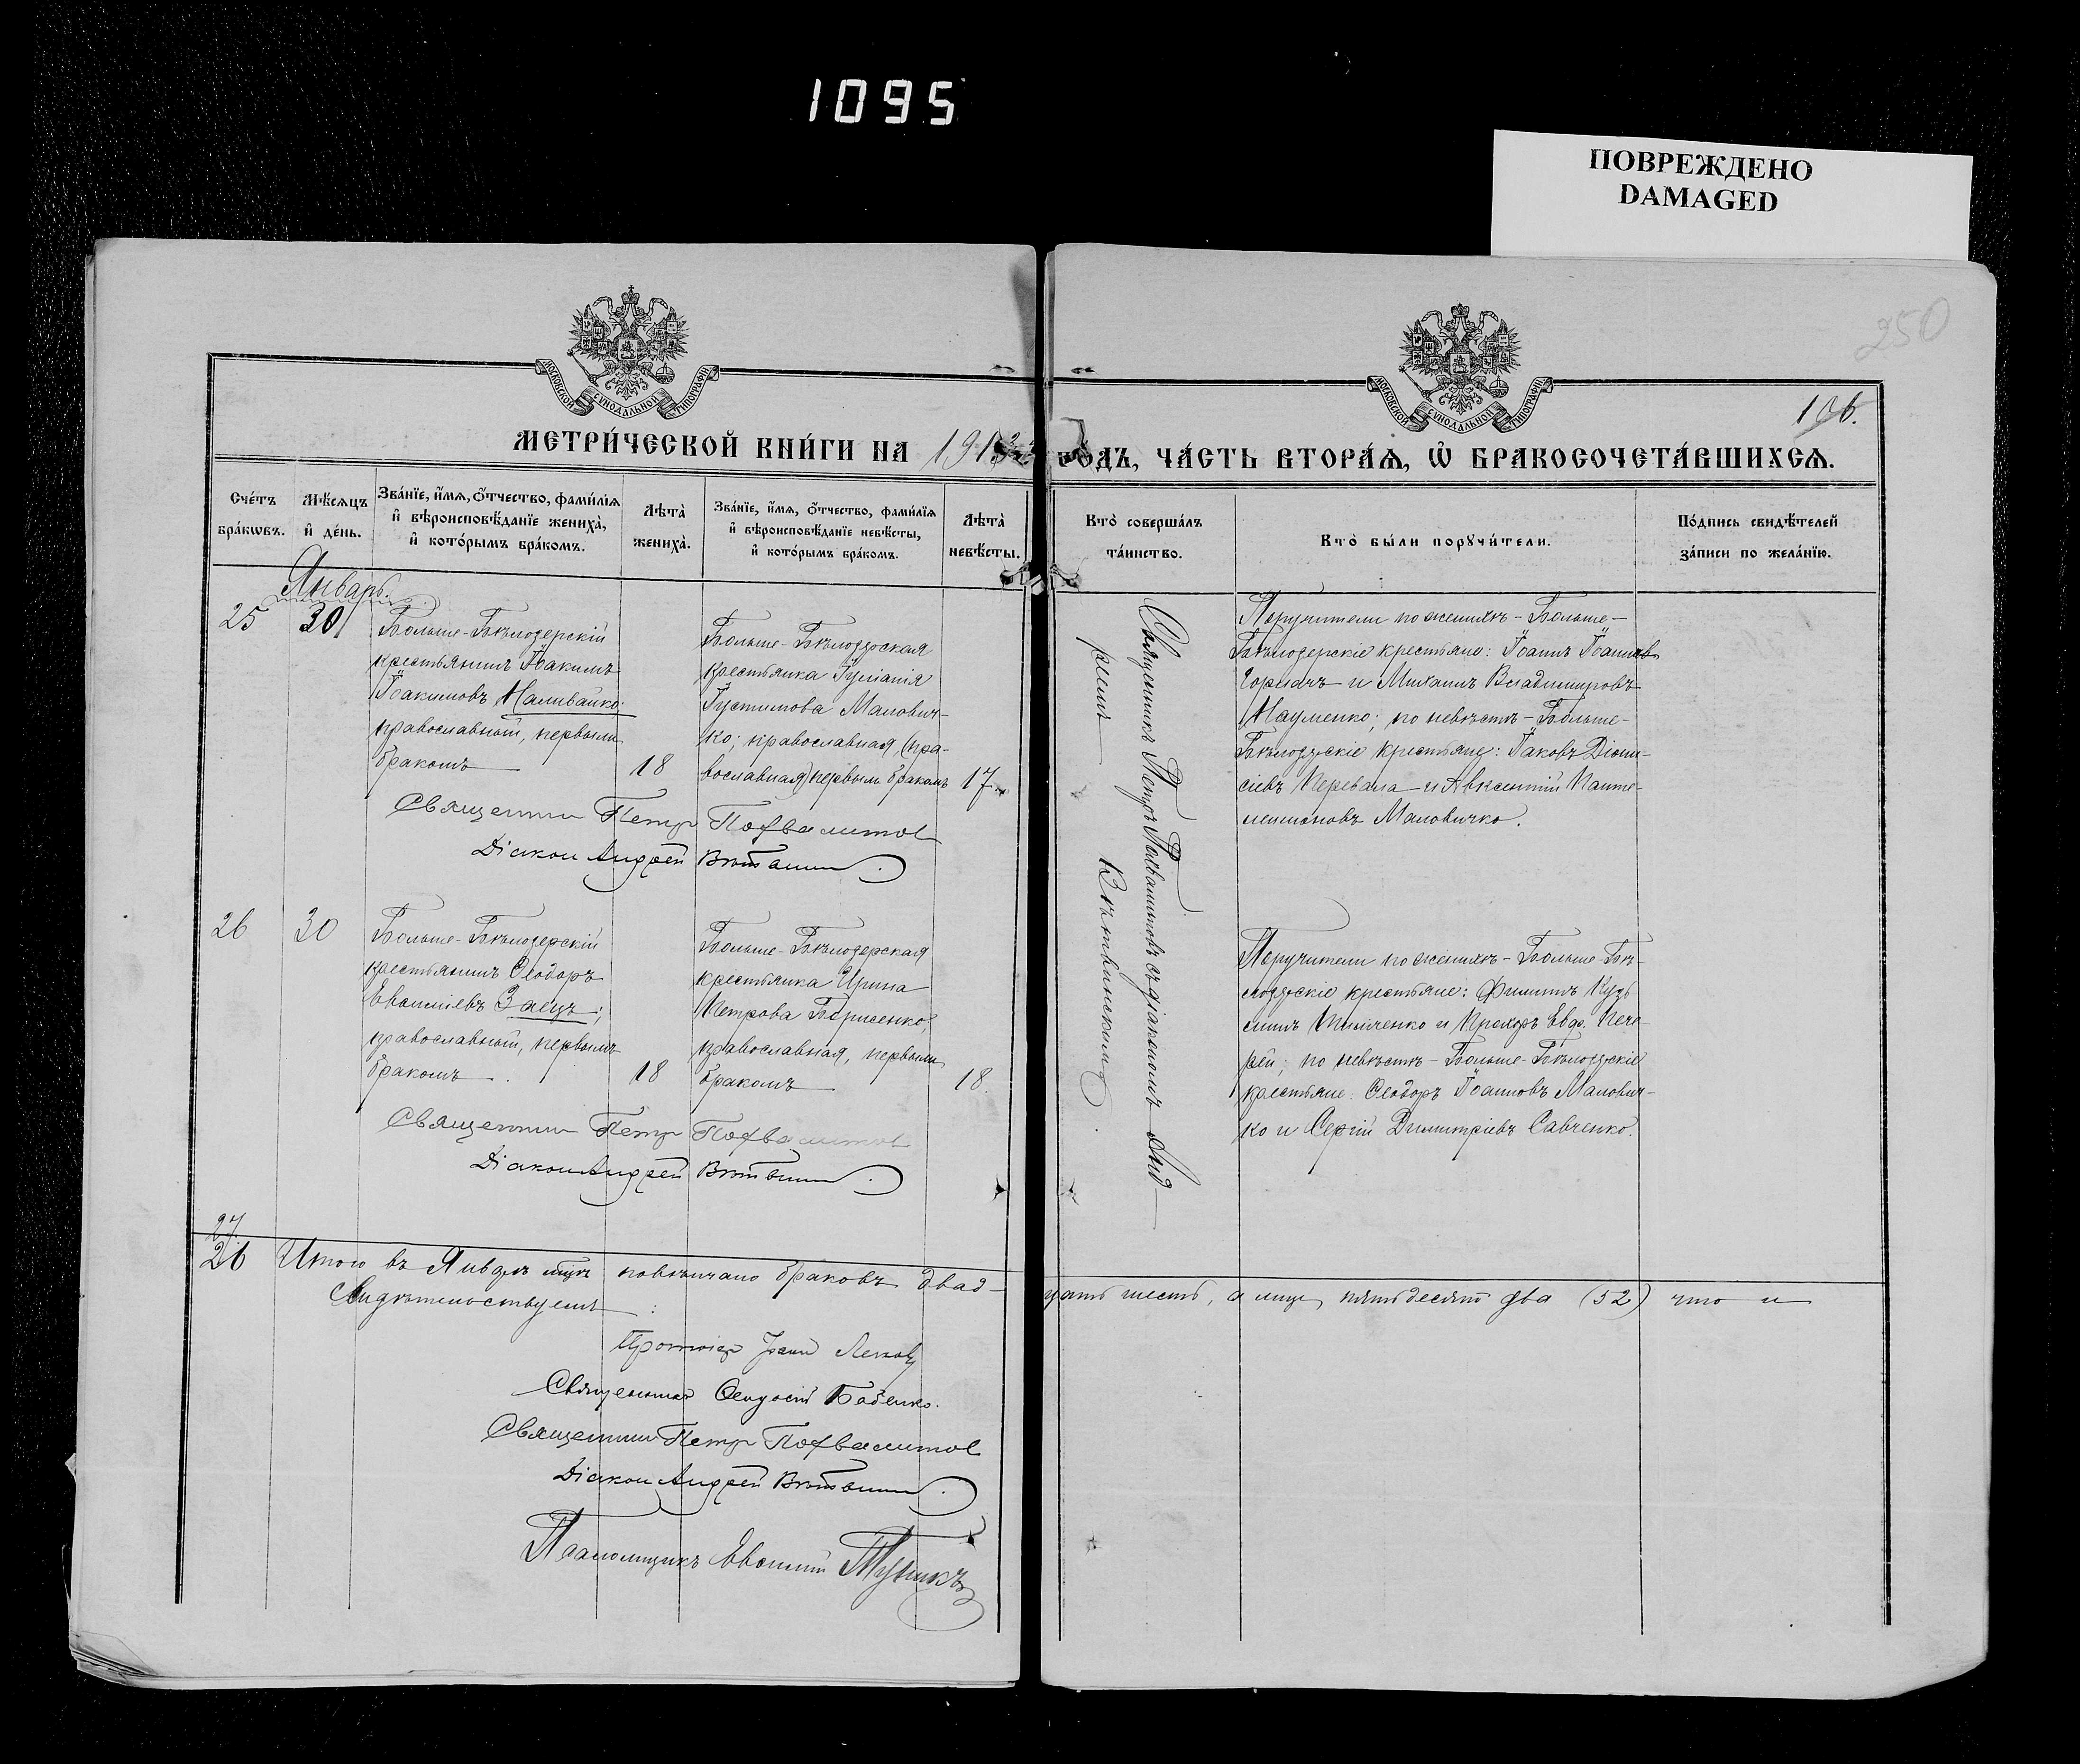 1095
ПОВРЕЖДЕНО
DAMAGED
250
МОСКОВСКОЙ СѴНОДАЛЬНОЙ ТИПОГРАФІИ
МОСКОВСКОЙ СѴНОДАЛЬНОЙ ТИПОГРАФІИ
106.
МЕТРИ́ЧЕСКОЙ КНИ́ГИ НА 1913 ГО́ДЪ, ЧА́СТЬ ВТОРА́Ѧ, Ѡ҆ БРАКОСОЧЕТА́ВШИХСѦ.
Сче́тъ бра́кѡвъ.
Мѣ́сѧцъ и҆ де́нь.
Зва́нїе, и҆́мѧ, ѻ҆́тчество, фами́лїѧ
и҆ вѣроисповѣ́данїе жениха̀,
и҆ кото́рымъ бра́комъ.
Лѣта̀ жениха̀.
Зва́нїе, и҆́мѧ, ѻ҆́тчество, фами́лїѧ
и҆ вѣроисповѣ́данїе невѣ́сты,
и҆ кото́рымъ бра́комъ.
Лѣта̀ невѣ́сты.
Кто̀ соверша́лъ
та́инство.
Кто̀ бы́ли порꙋчи́тели.
По́дпись свидѣ́телей
за́писи по жела́нїю.
Январь.
25
30
Больше-Бѣлозерскій
крестьянинъ Іоакимъ
Іоакимовъ Наливайко;
православный, первымъ
бракомъ
18
Больше-Бѣлозерская
крестьянка Іуліанія
Іустинова Малович-
ко; православная, (пра-
вославная) первымъ бракомъ
17.
Священник Петр Похвалитов
Діакон Андрей Вѣтвин
Священникъ Петръ Похвалитовъ съ діакономъ Анд-
реемъ Вѣтвинскимъ
Поручители по женихѣ - Больше-
Бѣлозерскіе крестьяне: Іоаннъ Іоанновъ
Горначъ и Михаилъ Владимировъ
Науменко; по невѣстѣ - Больше-
Бѣлозерскіе крестьяне: Іаковъ Діони-
сіевъ Перевала и Авксентій Панте-
леимоновъ Маловичко.
26
30
Больше-Бѣлозерскій
крестьянинъ Ѳеодоръ
Евѳиміевъ Заецъ;
православный, первымъ
бракомъ
18
Больше-Бѣлозерская
крестьянка Ирина
Петрова Борисенко;
православная, первымъ
бракомъ
18.
Священник Петр Похвалитов
Діакон Андрей Вѣтвин
Поручители по женихѣ - Больше-Бѣ-
лозерскіе крестьяне: Филиппъ Кузь
минъ и Прохоръ Евдо. Пече-
рей; по невѣстѣ - Больше-Бѣлозерскіе
крестьяне: Ѳеодоръ Іоанновъ Малович-
ко и Сергій Димитріевъ Савченко.
27.
26 Итого въ Январѣ мцѣ повѣнчано браковъ двад-
цать шесть, а лицъ пятьдесятъ два (52) что и
Свидѣтельствуемъ:
Протоіер Іоанн
Священникъ Ѳеодосій Бабенко.
Священник Петр Похвалитов
Діакон Андрей Вѣтвин.
Псаломщикъ Евѳимій